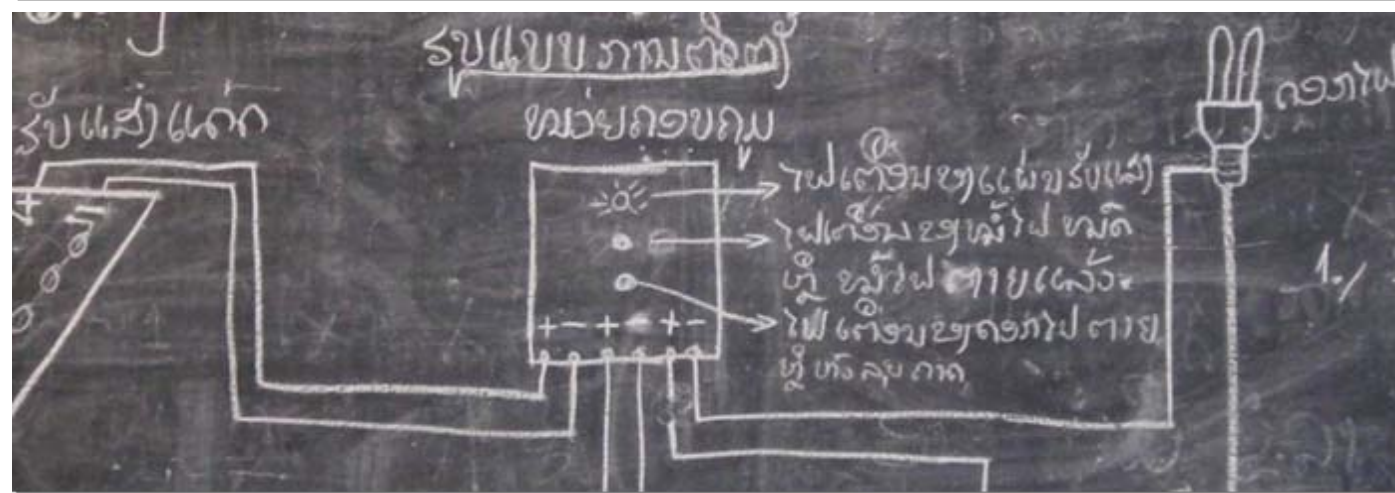 ຮູບແບບການຕິດຕັ້ງ
ຮັບແສງແດດ
ໜ່ວຍຄອບຄຸມ
ດອກໄຟ
ໄຟເຕືອນຂອງແຜ່ນຮັບແສງ
ໄຟເຕືອນຂອງໝໍ້ໄຟ ໝົດ
ຫຼື ໝໍ້ໄຟຕາຍແລ້ວ
ໄຟເຕືອນຂອງດອກໄຟຕາຍ
ຫຼື
+ -
+ - + - + -
1./